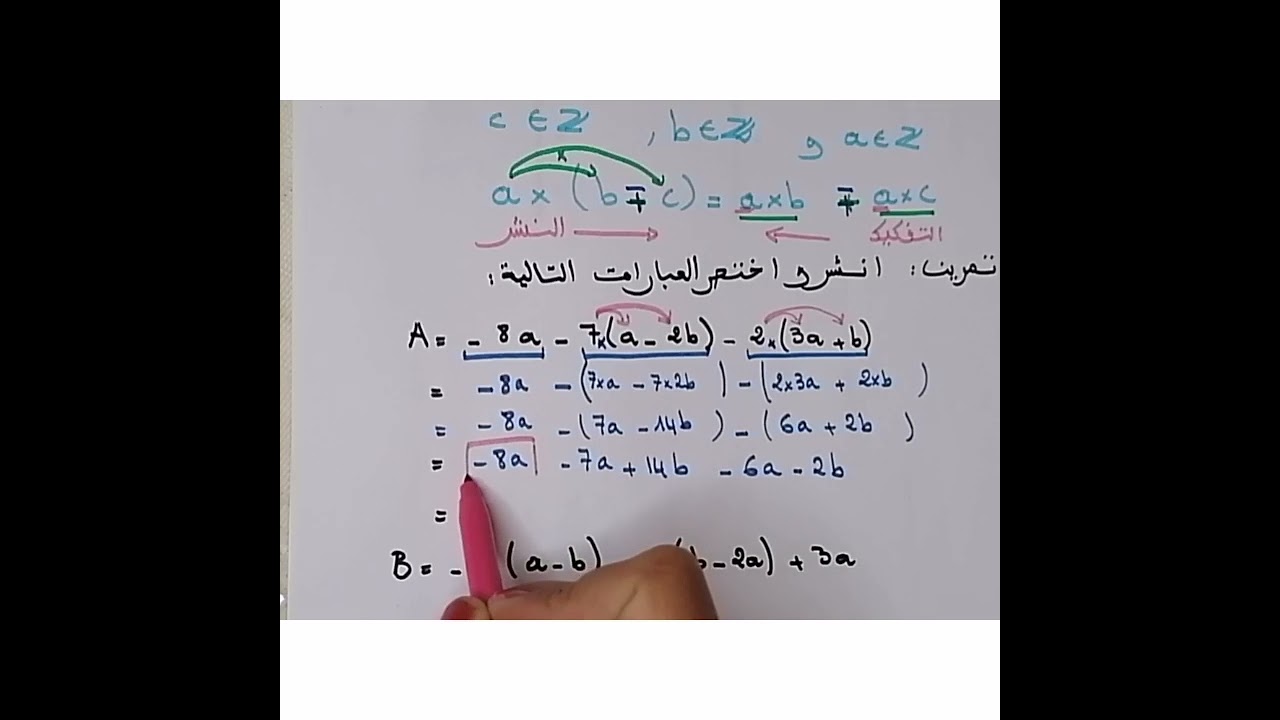 c ∈ ℤ , b ∈ ℤ و a ∈ ℤ
a × (b ∓ c) = a×b ∓ a×c
النشر التفكيك
تمرين: انشر و اختصر العبارات التالية:
A = - 8a - 7×(a - 2b) - 2×(3a + b)
= - 8a - (7×a - 7×2b) - (2×3a + 2×b)
= - 8a - (7a - 14b) - (6a + 2b)
= - 8a - 7a + 14b - 6a - 2b
=
B = - (a - b) (b - 2a) + 3a